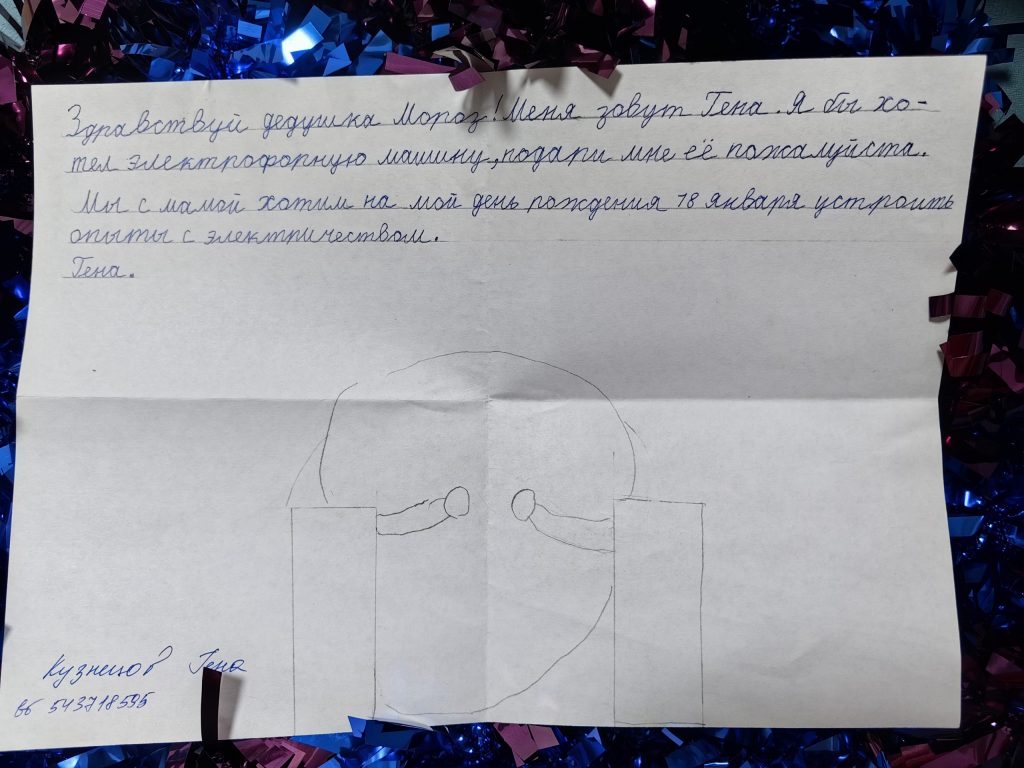 Здравствуй дедушка Мороз! Меня зовут Гена. Я бы хо-
тел электрофорную машину, подари мне её пожалуйста.
Мы с мамой хотим на мой день рождения 18 января устроить
опыты с электричеством.
Гена.
Кузнецов Гена
вб 543718595